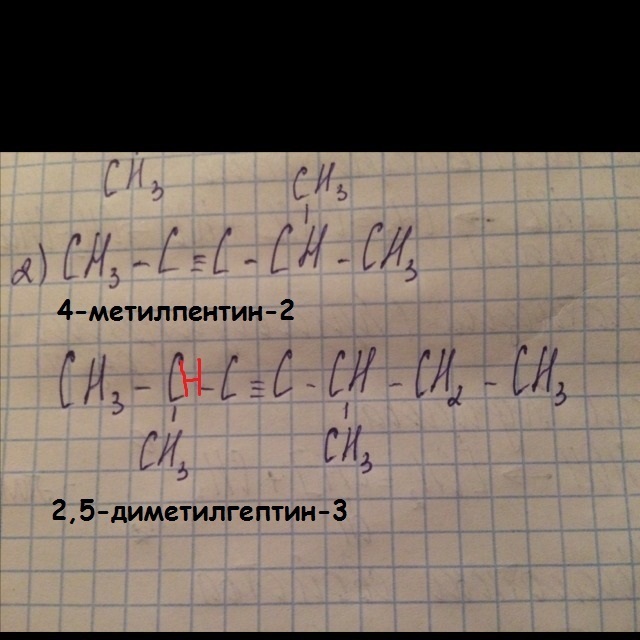 CH₃ CH₃
2) CH₃ - C ≡ C - CH - CH₃
4-метилпентин-2
CH₃ - CH - C ≡ C - CH - CH₂ - CH₃
CH₃ CH₃
2,5-диметилгептин-3